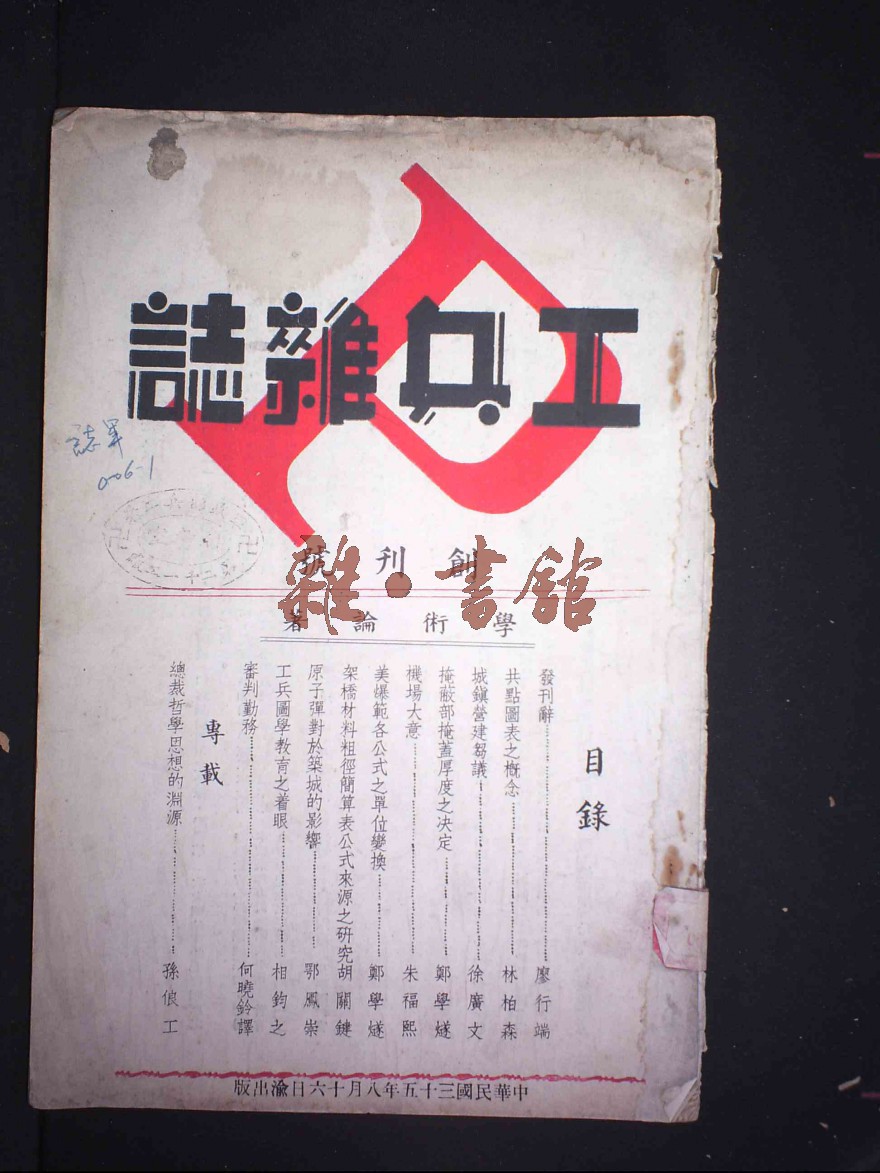 工兵雜誌
誌軍
006-1
創刊號
雜·書館
學術論著
目錄
發刊辭 廖行端
共點圖表之概念 林柏森
城鎮營建芻議 徐廣文
掩蔽部掩蓋厚度之决定 鄭學燧
機場大意 朱福熙
美爆範各公式之單位變換 鄭學燧
架橋材料粗徑簡算表公式來源之研究 胡關鍵
原子彈對於築城的影響 鄂鳳崇
工兵圖學教育之着眼 相鈞之
審判勤務 何曉鈴譯
專載
總裁哲學思想的淵源 孫俍工
中華民國三十五年八月十六日渝出版